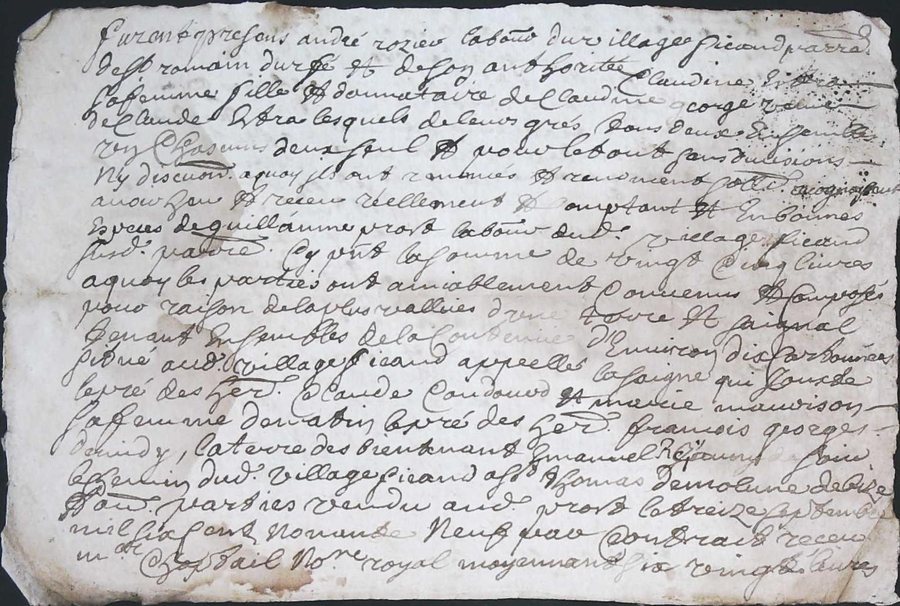 furent presens andré rozier labour du village ficaud parre
de st romain durfé et de son authorite Claudine
sa femme fille et donnataire de Claudine george veuve
de Claude Extra lesquels de leurs grés tous deux Ensemble
un Chascuns deux seul et pour le tout sans divisions
Ny discution aquoy ils ont renonces et renoncent
avoir heu et receu réellement et Comptant et En bonnes
Especes de guillaume prost labour dud. village ficaud
susd. parre Cy pnt la somme de vingt Cinq livres
aquoy les parties ont amiablement Convenus et Composés
pour raison de la plus vallue d'une terre et saignal
tenant Ensembles de la Contenue d'Environ dix
situé aud. village ficaud appellés la saigne qui Jouxte
le pré des her. Claude Coudour et marie mauvison
sa femme de matin le pré des her. francois georges
de midy, la terre des bientenant Emanuel de soir
le chemin dud. village ficaud Thomas de molune de bize
parties vendu aud. prost le treize septembre
mil six Cent Nonante Neuf par Contrait receu
m.e Chaptail No.re royal moyennant six vingt livres